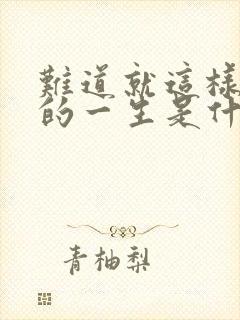 難道就這樣
的一生是什
青柚梨